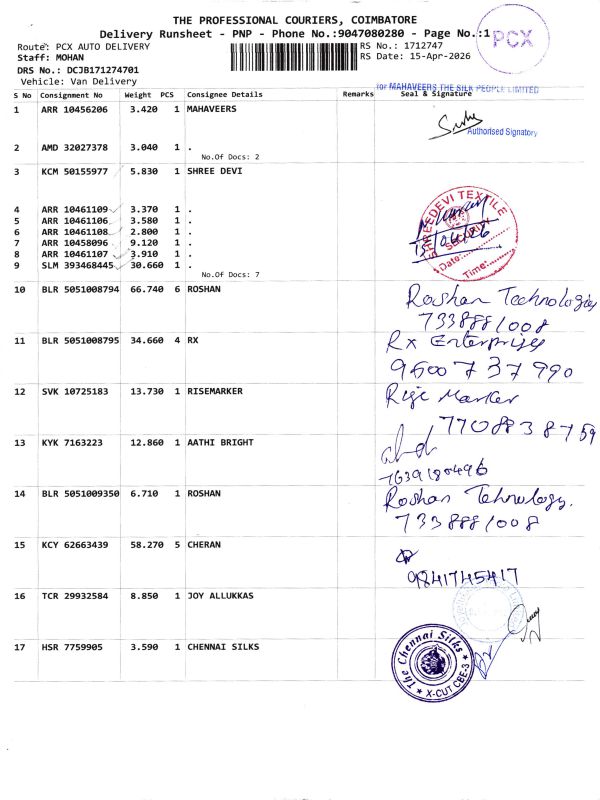 THE PROFESSIONAL COURIERS, COIMBATORE
Delivery Runsheet - PNP - Phone No.:9047080280 - Page No.:1
PCX
Route: PCX AUTO DELIVERY
RS No.: 1712747
Staff: MOHAN
RS Date: 15-Apr-2026
DRS No.: DCJB171274701
Vehicle: Van Delivery
for MAHAVEERS THE SILK PEOPLE LIMITED
S No Consignment No Weight PCS Consignee Details Remarks Seal & Signature
1 ARR 10456206 3.420 1 MAHAVEERS
Authorised Signatory
2 AMD 32027378 3.040 1 .
No.Of Docs: 2
3 KCM 50155977 5.830 1 SHREE DEVI
SHREEDEVI TEXTILE
SECURITY
Date:
Time:
4 ARR 10461109 3.370 1 .
5 ARR 10461106 3.580 1 .
6 ARR 10461108 2.800 1 .
7 ARR 10458096 9.120 1 .
8 ARR 10461107 3.910 1 .
9 SLM 393468445 30.660 1 .
No.Of Docs: 7
10 BLR 5051008794 66.740 6 ROSHAN
Roshan Technologies
7338881008
11 BLR 5051008795 34.660 4 RX
Rx Enterprises
9600737990
12 SVK 10725183 13.730 1 RISEMARKER
Rise Marker
7708838759
13 KYK 7163223 12.860 1 AATHI BRIGHT
7639180496
14 BLR 5051009350 6.710 1 ROSHAN
Roshan Tehnology.
7338881008
15 KCY 62663439 58.270 5 CHERAN
9841745417
16 TCR 29932584 8.850 1 JOY ALLUKKAS
17 HSR 7759905 3.590 1 CHENNAI SILKS
The Chennai Silks
X-CUT CBE-3